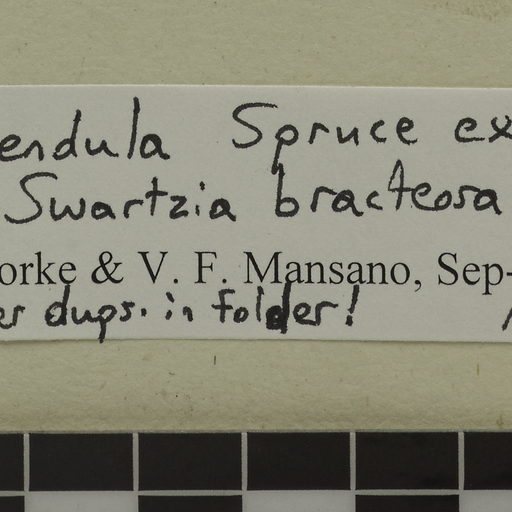 endula Spruce ex
Swartzia bracteosa
orke & V. F. Mansano, Sep-
er dups. in folder!